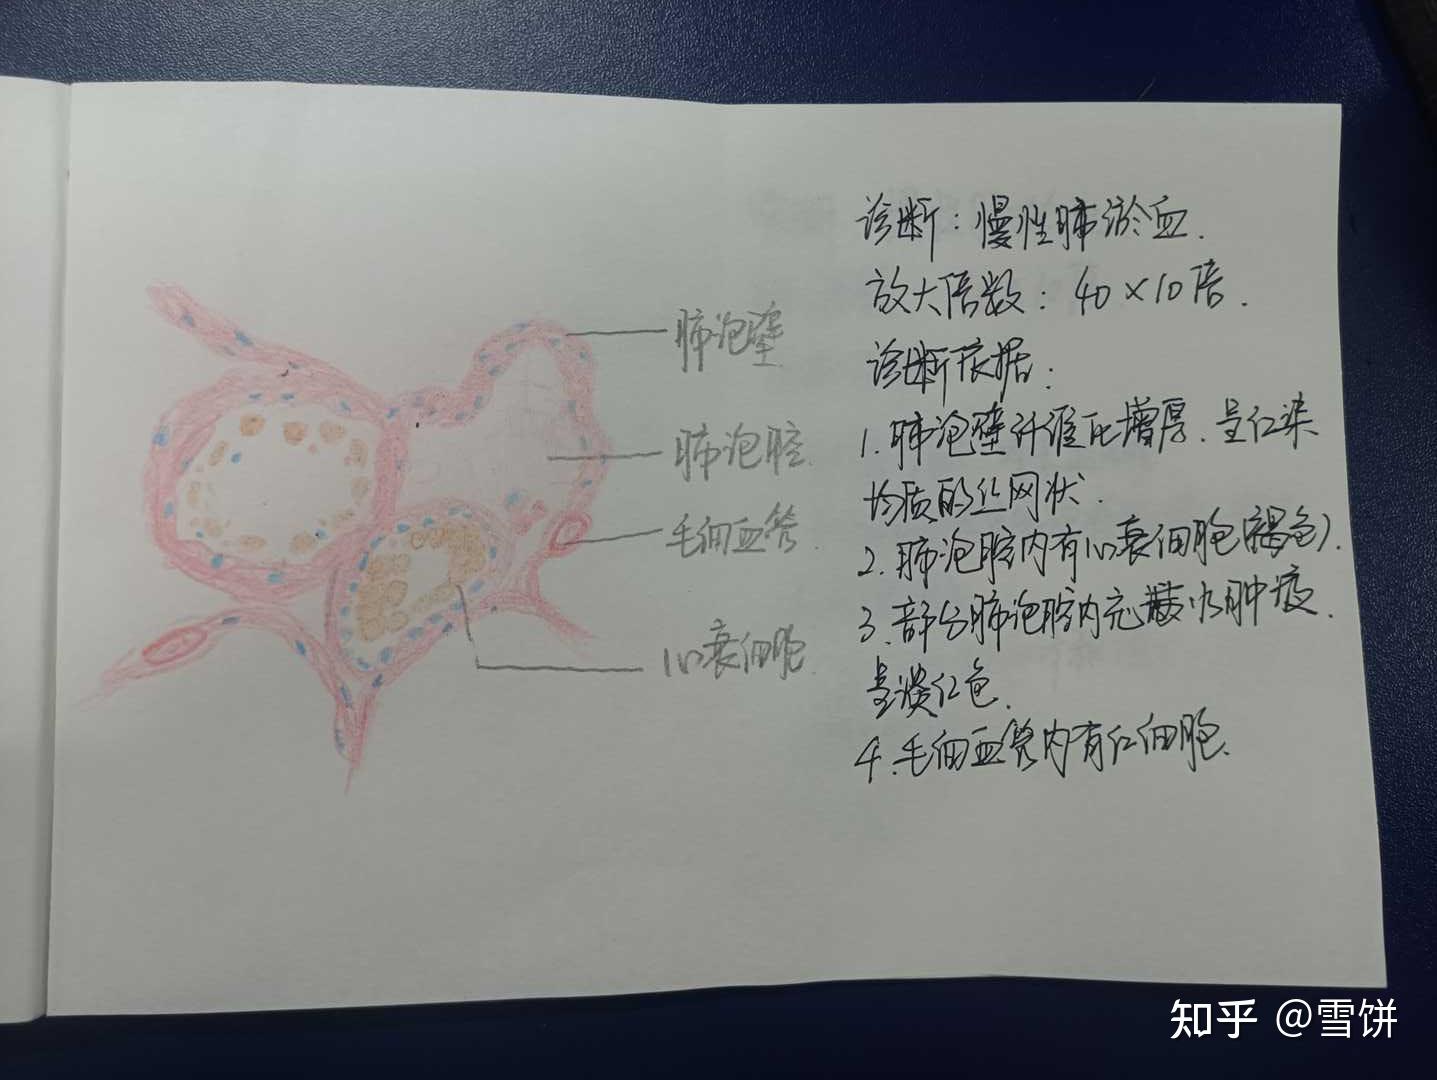 肺泡壁
肺泡腔
毛细血管
心衰细胞
诊断：慢性肺淤血.
放大倍数：40×10倍.
诊断依据：
1.肺泡壁纤维化增厚.呈红染
均质的丝网状.
2.肺泡腔内有心衰细胞(褐色).
3.部分肺泡腔内充满水肿液.
呈淡红色.
4.毛细血管内有红细胞.
知乎 @雪饼